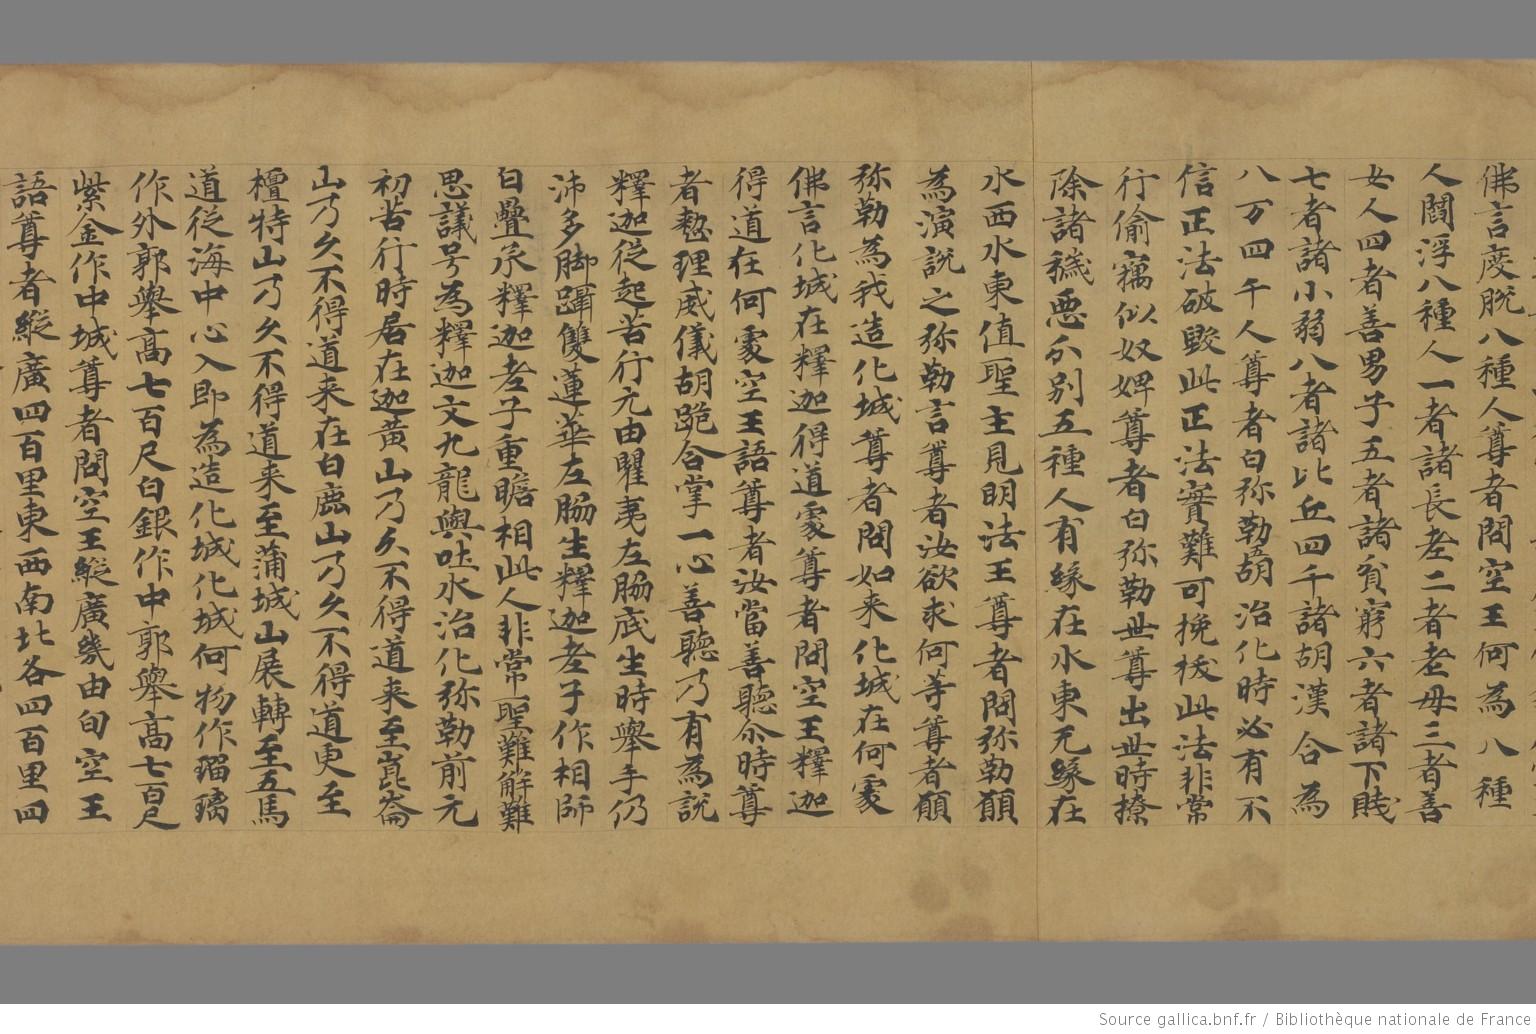 佛言度脫八種人尊者問空王何為八種
人閻浮八種人一者諸長老二者老母三者善
女人四者善男子五者諸貧窮六者諸下賎
七者諸小弱八者諸比丘四千諸胡漢合為
八万四千人尊者白弥勒胡治化時必有不
信正法破毀此正法實難可挽拔此法非常
行偷竊似奴婢尊者白弥勒世尊出世時撩
除諸穢惡分別五種人有緣在水東无緣在
水西水東值聖主見明法王尊者問弥勒願
為演說之弥勒言尊者汝欲求何等尊者願
弥勒為我造化城尊者問如来化城在何處
佛言化城在釋迦得道處尊者問空王釋迦
得道在何處空王語尊者汝當善聽尒時尊
者懃理威儀胡跪合掌一心善聽乃有為說
釋迦從起苦行元由瞿夷左脇底生時舉手仍
沛多脚躡雙蓮華左脇生釋迦老子作相師
白疊承釋迦老子重瞻相此人非常聖難解難
思議号為釋迦文九龍與吐水治化弥勒前元
初苦行時居在迦黄山乃久不得道来至崑崙
山乃久不得道来在白鹿山乃久不得道更至
檀特山乃久不得道来至蒲城山展轉至五馬
道從海中心入即為造化城化城何物作瑠璃
作外郭舉高七百尺白銀作中郭舉高七百尺
紫金作中城尊者問空王縱廣幾由旬空王
語尊者縱廣四百里東西南北各四百里四
Source gallica.bnf.fr / Bibliothèque nationale de France